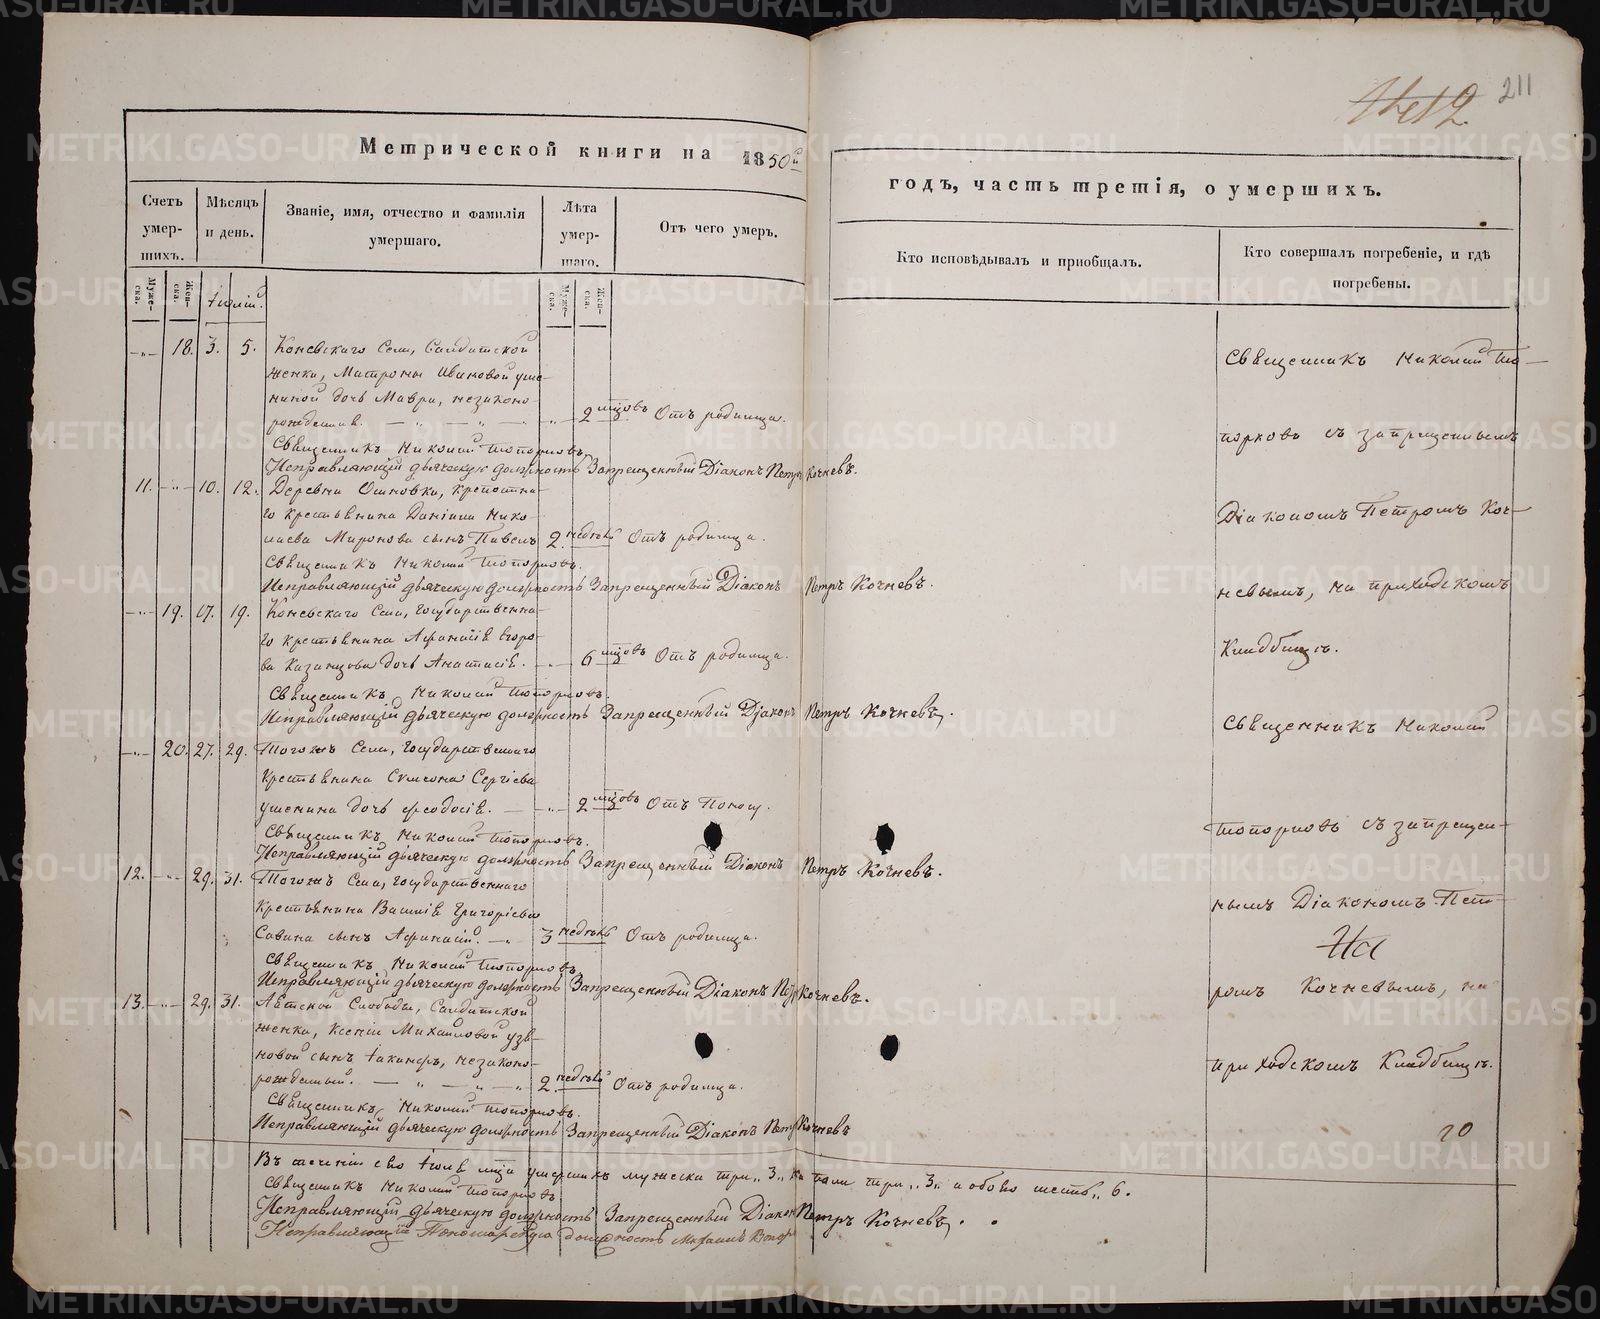 211
Метрической книги на 1850й
годъ, часть третія, о умершихъ.
Счетъ умер-шихъ.
Мѣсяцъ и день.
Званіе, имя, отчество и фамилія умершаго.
Лѣта умер-шаго.
Отъ чего умеръ.
Кто исповѣдывалъ и приобщалъ.
Кто совершалъ погребеніе, и гдѣ погребены.
Муже-ска.
Жен-ска.
Іюлій.
Муже-ска.
Жен-ска.
18. 3. 5. Коневскаго Села, Салдатской
женки, Матроны Ивановой
дочь Мавра, незаконо-
рожденная. 2 мцовъ Отъ родимца.
Священникъ Николай Топорковъ.
Исправляющій дьяческую должность Запрещенный Діаконъ Петръ Кочневъ.
11. 10. 12. Деревни Осиновки,
го крестьянина Даніила Нико-
лаева Миронова сынъ Павелъ 2 недѣль Отъ родимца.
Священникъ Николай Топорковъ.
Исправляющій дьяческую должность Запрещенный Діаконъ Петръ Кочневъ.
19. 17. 19. Коневскаго Села, Государственна-
го крестьянина Афанасія Егоро-
ва Казанцова дочь Анастасія. 6 мцовъ Отъ родимца.
Священникъ Николай Топорковъ.
Исправляющій дьяческую должность Запрещенный Діаконъ Петръ Кочневъ.
20. 27. 29. Тогожъ Села, Государственнаго
крестьянина Симеона Сергіева
дочь Феодосія. 2 мцовъ Отъ Поносу.
Священникъ Николай Топорковъ.
Исправляющій дьяческую должность Запрещенный Діаконъ Петръ Кочневъ.
12. 29. 31. Тогожъ Села, Государственнаго
крестьянина Василія Григорьева
Савина сынъ Афанасій. 3 недѣль Отъ родимца.
Священникъ Николай Топорковъ.
Исправляющій дьяческую должность Запрещенный Діаконъ Петръ Кочневъ.
13. 29. 31. Аятской Слободы, Салдатской
женки, Ксеніи Михайловой
сынъ Іакинфъ, незаконо-
рожденный. 2. недѣль Отъ родимца.
Священникъ Николай Топорковъ.
Исправляющій дьяческую должность Запрещенный Діаконъ Петръ Кочневъ
Священникъ Николай То-
порковъ съ запрещеннымъ
Діакономъ Петромъ Коч-
невымъ, на приходскомъ
Кладбищѣ.
Священникъ Николай
Топорковъ съ запрещен-
нымъ Діакономъ Пет-
На
ромъ Кочневымъ, на
приходскомъ Кладбищѣ.
Въ теченіи сего Іюля мца умершихъ мужеска три „3„ женска пола три „3„ а обоего шесть „ 6.
Священникъ Николай Топорковъ
Исправляющій дьяческую должность Запрещенный Діаконъ Петръ Кочневъ.
Исправляющій Пономарскую должность